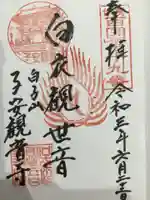 奉拝
令和三年六月二十二日
白衣観世音
白子山
子安観音寺